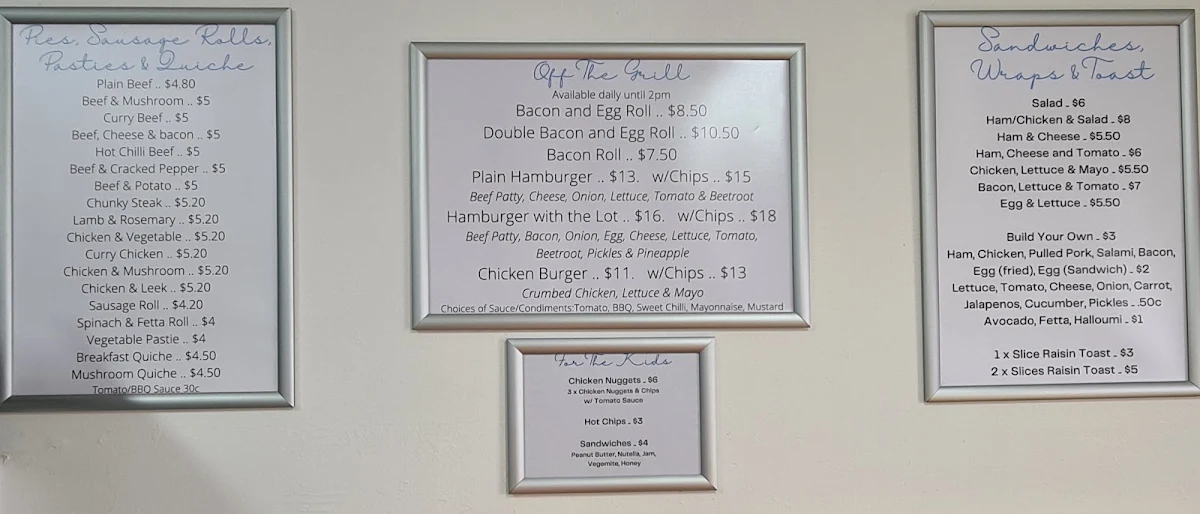 Pies, Sausage Rolls,
Pasties & Quiche
Plain Beef .. $4.80
Beef & Mushroom .. $5
Curry Beef .. $5
Beef, Cheese & bacon .. $5
Hot Chilli Beef .. $5
Beef & Cracked Pepper .. $5
Beef & Potato .. $5
Chunky Steak .. $5.20
Lamb & Rosemary .. $5.20
Chicken & Vegetable .. $5.20
Curry Chicken .. $5.20
Chicken & Mushroom .. $5.20
Chicken & Leek .. $5.20
Sausage Roll .. $4.20
Spinach & Fetta Roll .. $4
Vegetable Pastie .. $4
Breakfast Quiche .. $4.50
Mushroom Quiche .. $4.50
Tomato/BBQ Sauce 30c
Off The Grill
Available daily until 2pm
Bacon and Egg Roll .. $8.50
Double Bacon and Egg Roll .. $10.50
Bacon Roll .. $7.50
Plain Hamburger .. $13. w/Chips .. $15
Beef Patty, Cheese, Onion, Lettuce, Tomato & Beetroot
Hamburger with the Lot .. $16. w/Chips .. $18
Beef Patty, Bacon, Onion, Egg, Cheese, Lettuce, Tomato,
Beetroot, Pickles & Pineapple
Chicken Burger .. $11. w/Chips .. $13
Crumbed Chicken, Lettuce & Mayo
Choices of Sauce/Condiments:Tomato, BBQ, Sweet Chilli, Mayonnaise, Mustard
For The Kids
Chicken Nuggets .. $6
3 x Chicken Nuggets & Chips
w/ Tomato Sauce
Hot Chips .. $3
Sandwiches .. $4
Peanut Butter, Nutella, Jam,
Vegemite, Honey
Sandwiches,
Wraps & Toast
Salad .. $6
Ham/Chicken & Salad .. $8
Ham & Cheese .. $5.50
Ham, Cheese and Tomato .. $6
Chicken, Lettuce & Mayo .. $5.50
Bacon, Lettuce & Tomato .. $7
Egg & Lettuce .. $5.50
Build Your Own .. $3
Ham, Chicken, Pulled Pork, Salami, Bacon,
Egg (fried), Egg (Sandwich) .. $2
Lettuce, Tomato, Cheese, Onion, Carrot,
Jalapenos, Cucumber, Pickles .. .50c
Avocado, Fetta, Halloumi .. $1
1 x Slice Raisin Toast .. $3
2 x Slices Raisin Toast .. $5